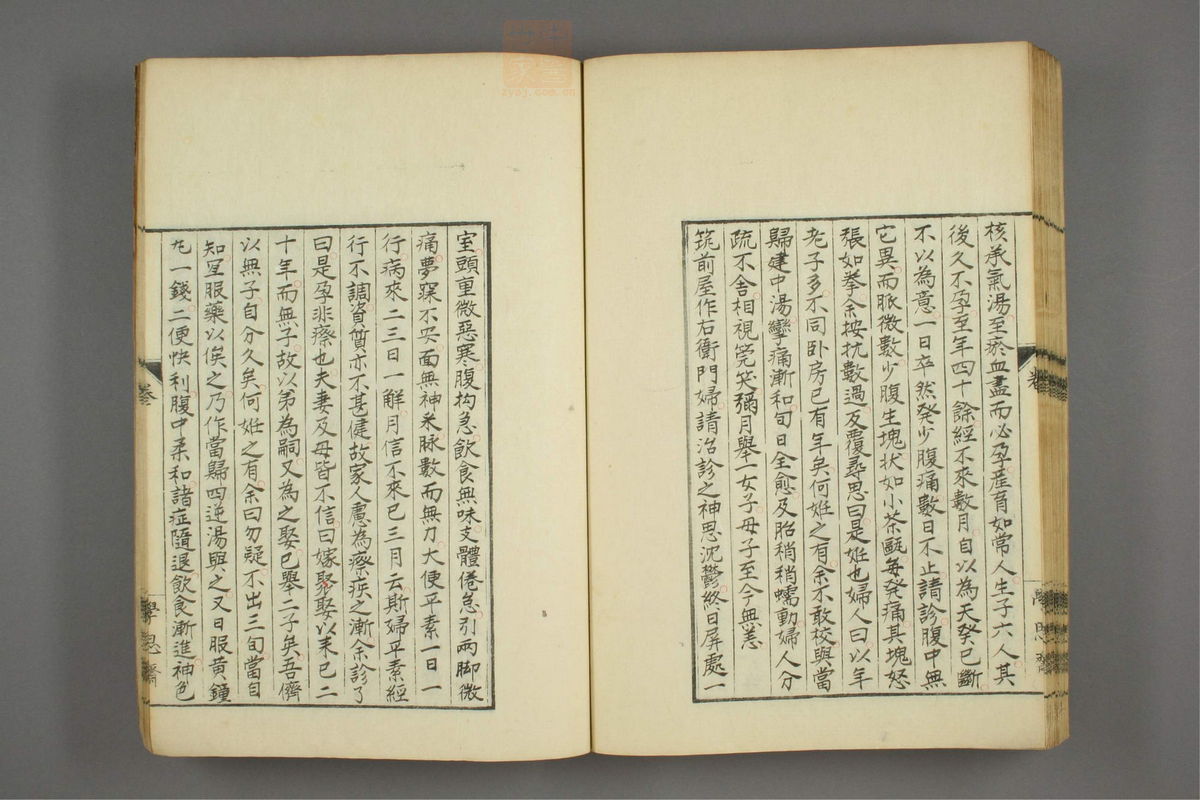 核承氣湯至瘀血盡而必孕產育如常人生子六人其
後久不孕至年四十餘經不來數月自以為天癸已斷
不以為意一日卒然発少腹痛數日不止請診腹中無
它異而脈微數少腹生塊状如小茶甌每発痛其塊怒
張如拳余按抗數過反覆尋思曰是姙也婦人曰以年
老子多不同卧房已有年矣何姙之有余不敢校與當
歸建中湯攣痛漸和旬日全愈及胎稍稍蠕動婦人分
疏不舍相視筦笑彌月舉一女子母子至今無恙
筑前屋作右衛門婦請治診之神思沈鬱終日屏處一
室頭重微惡寒腹拘急飲食無味支體倦怠引兩脚微
痛夢寐不安面無神釆脉數而無力大便平素一日一
行病來二三日一解月信不來已三月云斯婦平素經
行不調資質亦不甚健故家人慮為瘵疾之漸余診了
曰是孕非瘵也夫妻及母皆不信曰嫁聚娶以来已二
十年而無子故以弟為嗣又為之娶已舉二子矣吾儕
以無子自分久矣何姙之有余曰勿疑不出三旬當自
知室服藥以俟之乃作當歸四逆湯與之又日服黄鐘
丸一錢二便快利腹中柔和諸症隨退飲食漸進神色
卷
學思齋